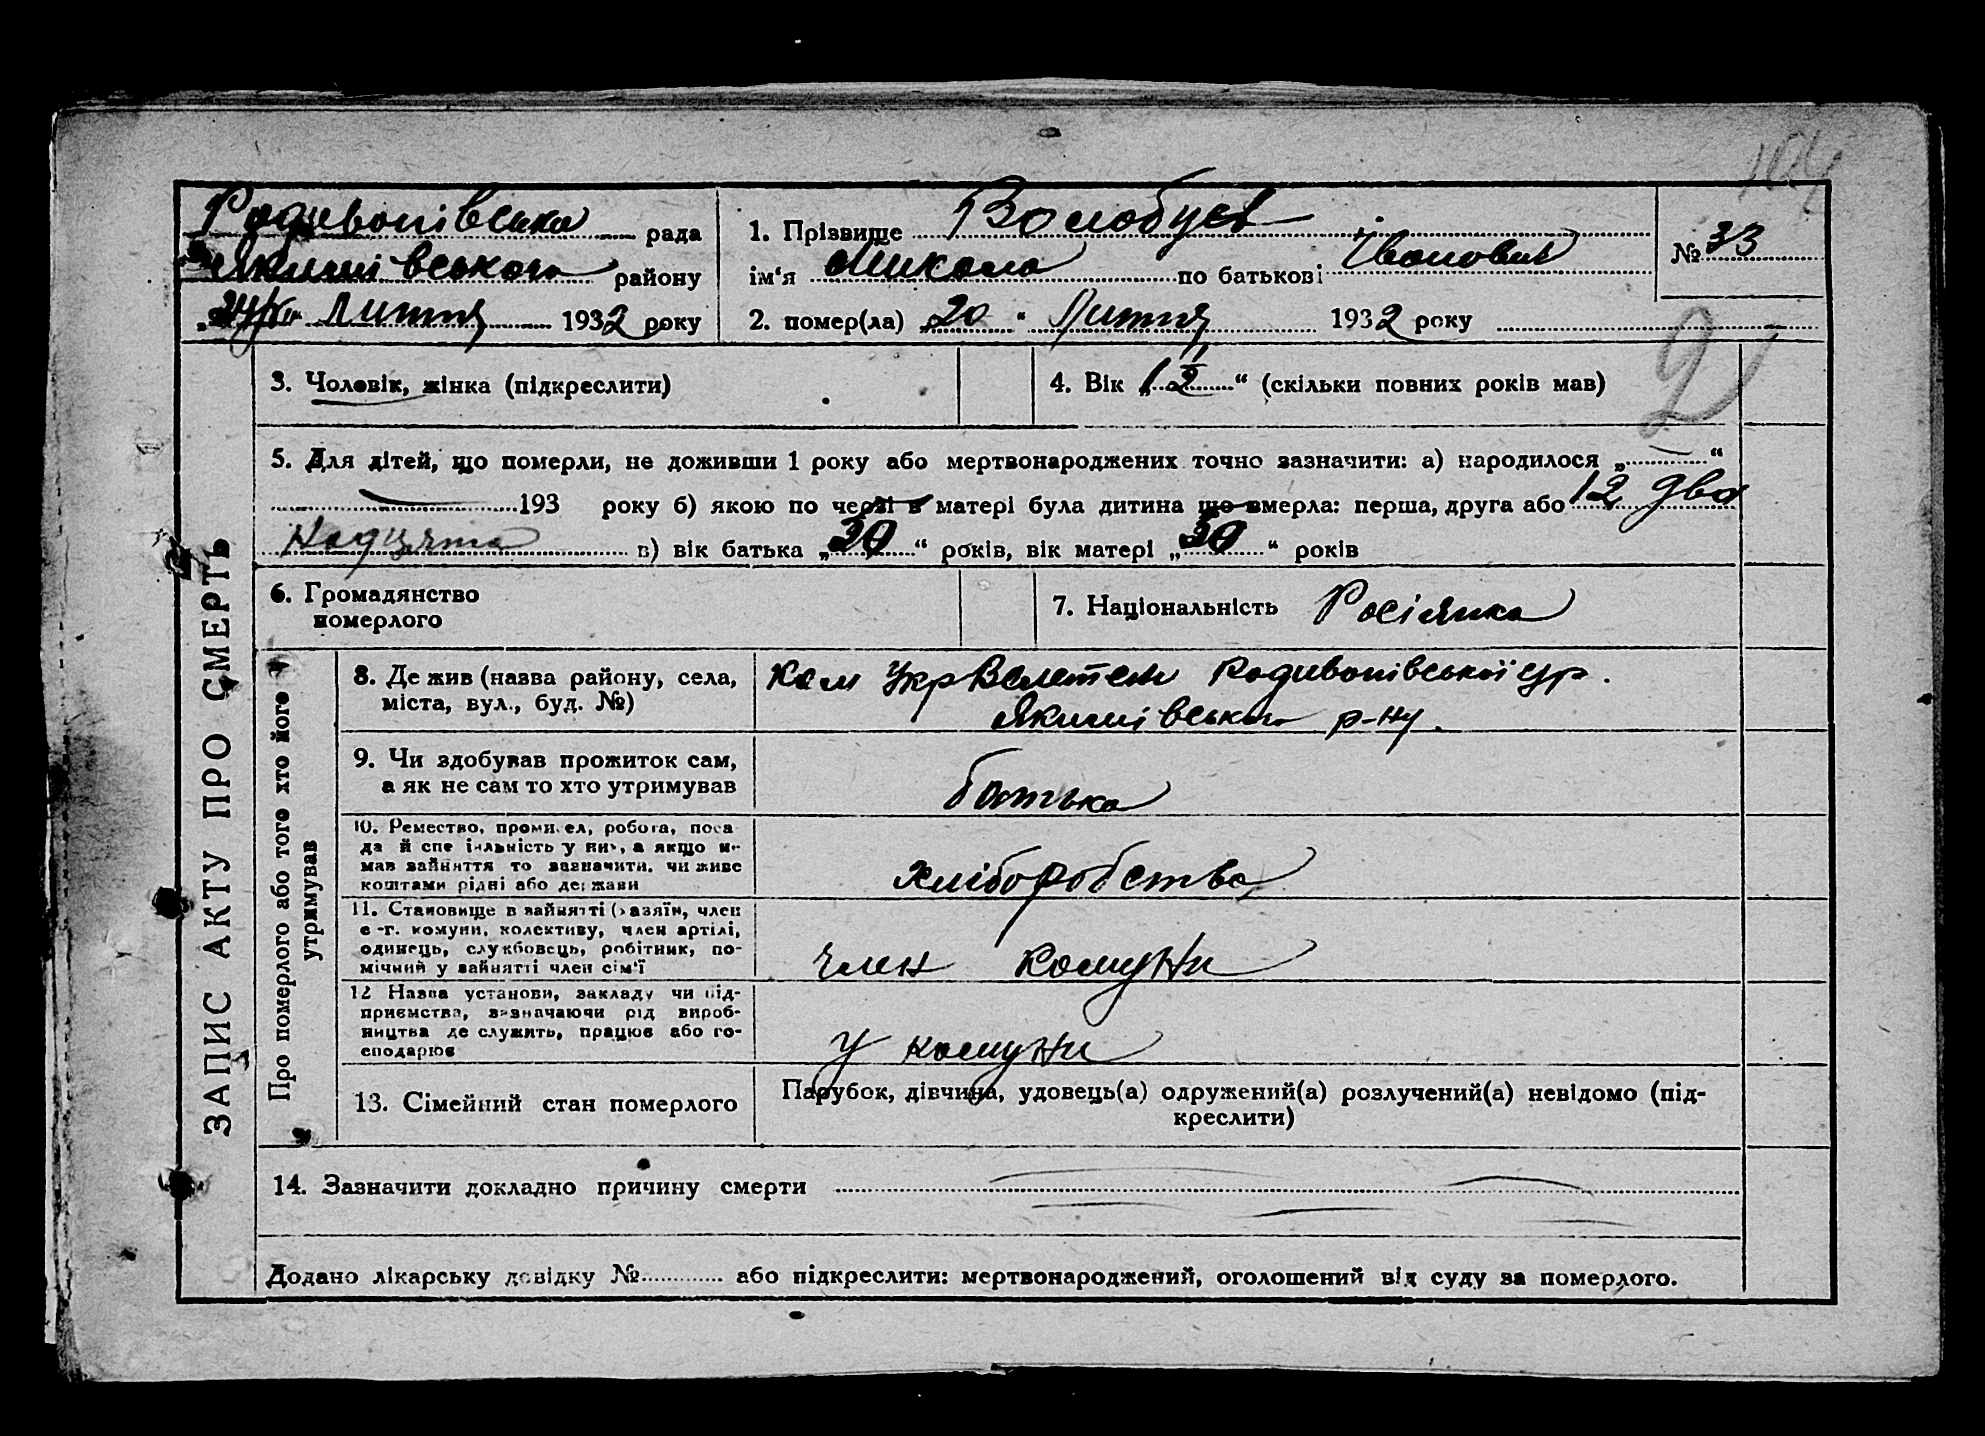 104
Родивонівська рада
Якимівського району
"24/VII" Липня 1932 року
1. Прізвище Волобуєв
ім'я Микола по батькові Іванович
2. помер(ла) "20" Липня 1932 року
№ 33
2
3. Чоловік, жінка (підкреслити)
4. Вік "1 1/2" (скільки повних років мав)
5. Для дітей, що померли, не доживши 1 року або мертвонароджених точно зазначити: а) народилося „ — “
— 193 року б) якою по черзі в матері була дитина що вмерла: перша, друга або 12 два
надцята в) вік батька „30“ років, вік матері „30“ років
6. Громадянство
померлого
7. Національність Росіянка
ЗАПИС АКТУ ПРО СМЕРТЬ
Про померлого або того хто його
утримував
8. Де жив (назва району, села,
міста, вул., буд. №)
Ком УкрВелетен Родивонівської с/р.
Якимівського р-ну.
9. Чи здобував прожиток сам,
а як не сам то хто утримував
батька
10. Ремество, промисел, робота, поса
да й спеціяльність у них, а якщо не
мав зайняття то зазначити, чи живе
коштами рідні або держави
хліборобство
11. Становище в зайнятті (хазяїн, член
с.-г. комуни, колективу, член артілі,
одинець, службовець, робітник, по-
мічний у зайнятті член сім'ї
член комуни
12 Назва установи, закладу чи під-
приємства, зазначаючи рід вироб-
ництва де служить, працює або го-
сподарює
У комуни
13. Сімейний стан померлого
Парубок, дівчина, удовець(а) одружений(а) розлучений(а) невідомо (під-
креслити)
14. Зазначити докладно причину смерти
Додано лікарську довідку № або підкреслити: мертвонароджений, оголошений від суду за померлого.